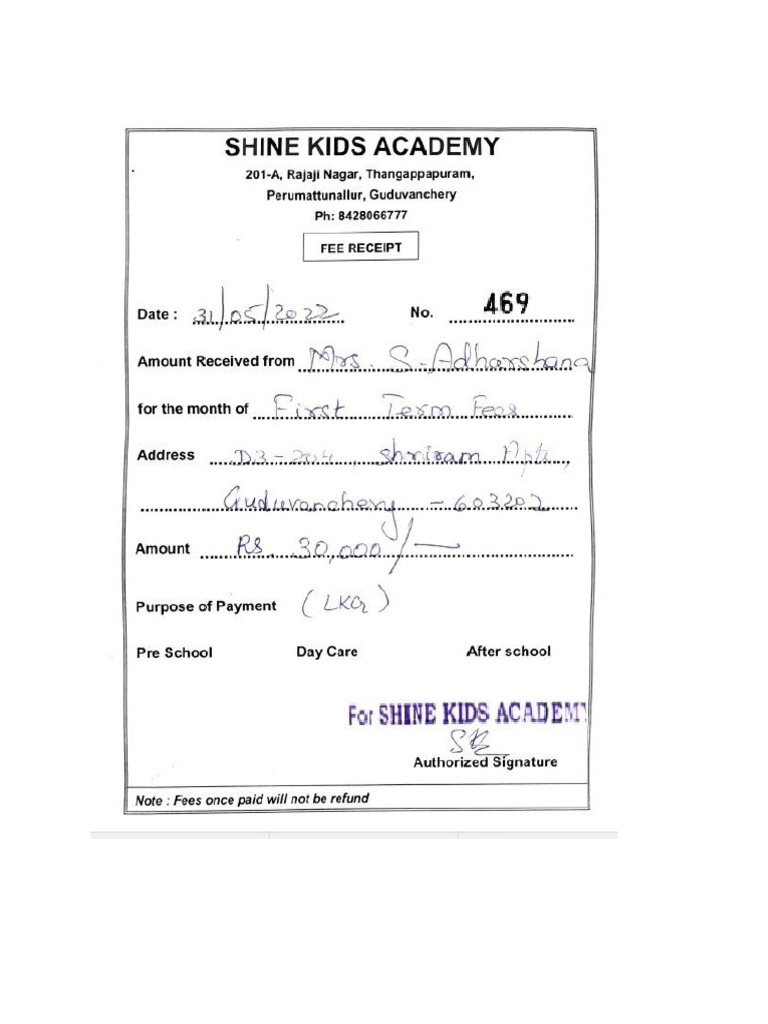 SHINE KIDS ACADEMY
201-A, Rajaji Nagar, Thangappapuram,
Perumattunallur, Guduvanchery
Ph: 8428066777
FEE RECEIPT
Date : 31/05/2022 No. 469
Amount Received from Mrs. S. Adharshana
for the month of First Term Fees
Address D3-204, Shriram Apts,
Guduvanchery - 603202
Amount Rs. 30,000/-
Purpose of Payment (LKG)
Pre School Day Care After school
For SHINE KIDS ACADEMY
Authorized Signature
Note : Fees once paid will not be refund